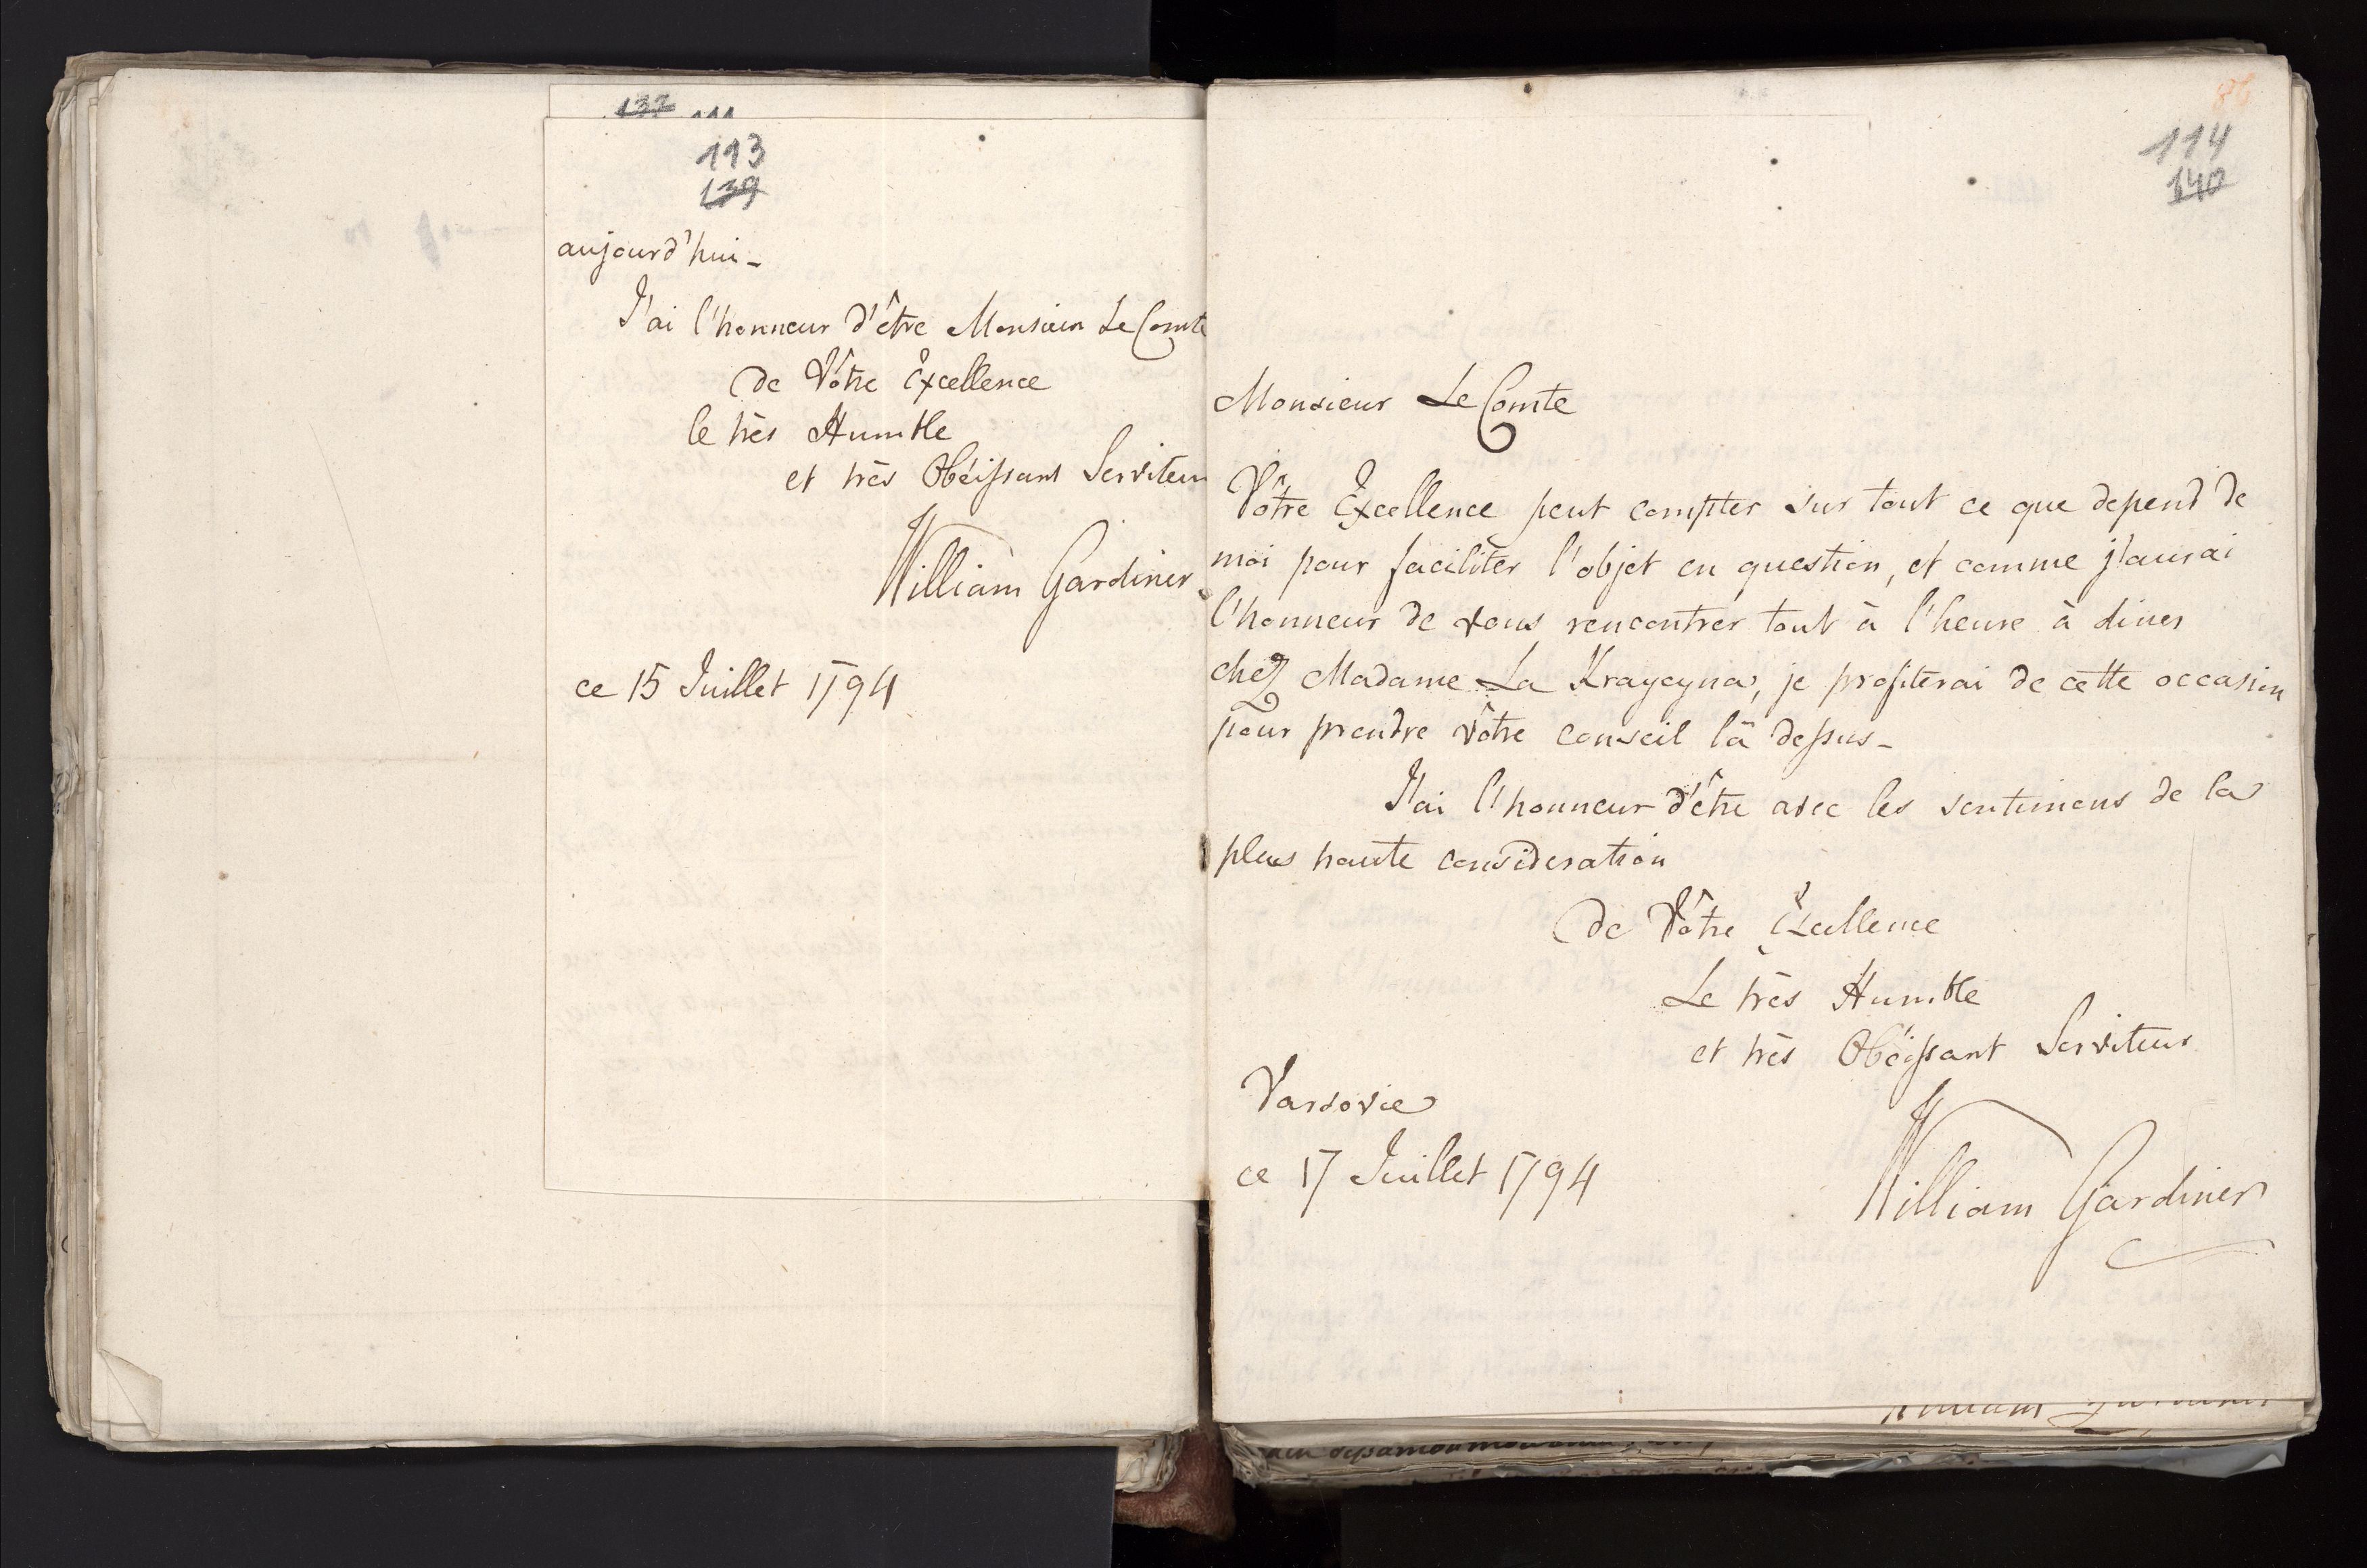 137 111
113
139
aujourd'hui_
J'ai l'honneur d'être Monsieur Le Comte
de Vôtre Excellence
le très Humble
et très Obéissant Serviteur
William Gardiner
ce 15 Juillet 1794
86
114
140
Monsieur Le Comte
Vôtre Excellence peut compter sur tout ce que depend de
moi pour faciliter l'objet en question, et comme j'aurai
l'honneur de vous rencontrer tout à l'heure à diner
chez Madame La Kraycyna, je profiterai de cette occasion
pour prendre vôtre conseil là dessus_
J'ai l'honneur d'être avec les sentimens de la
plus haute consideration
de Vôtre Excellence
Le très Humble
et très Obéissant Serviteur
Varsovie
ce 17 Juillet 1794
William Gardiner